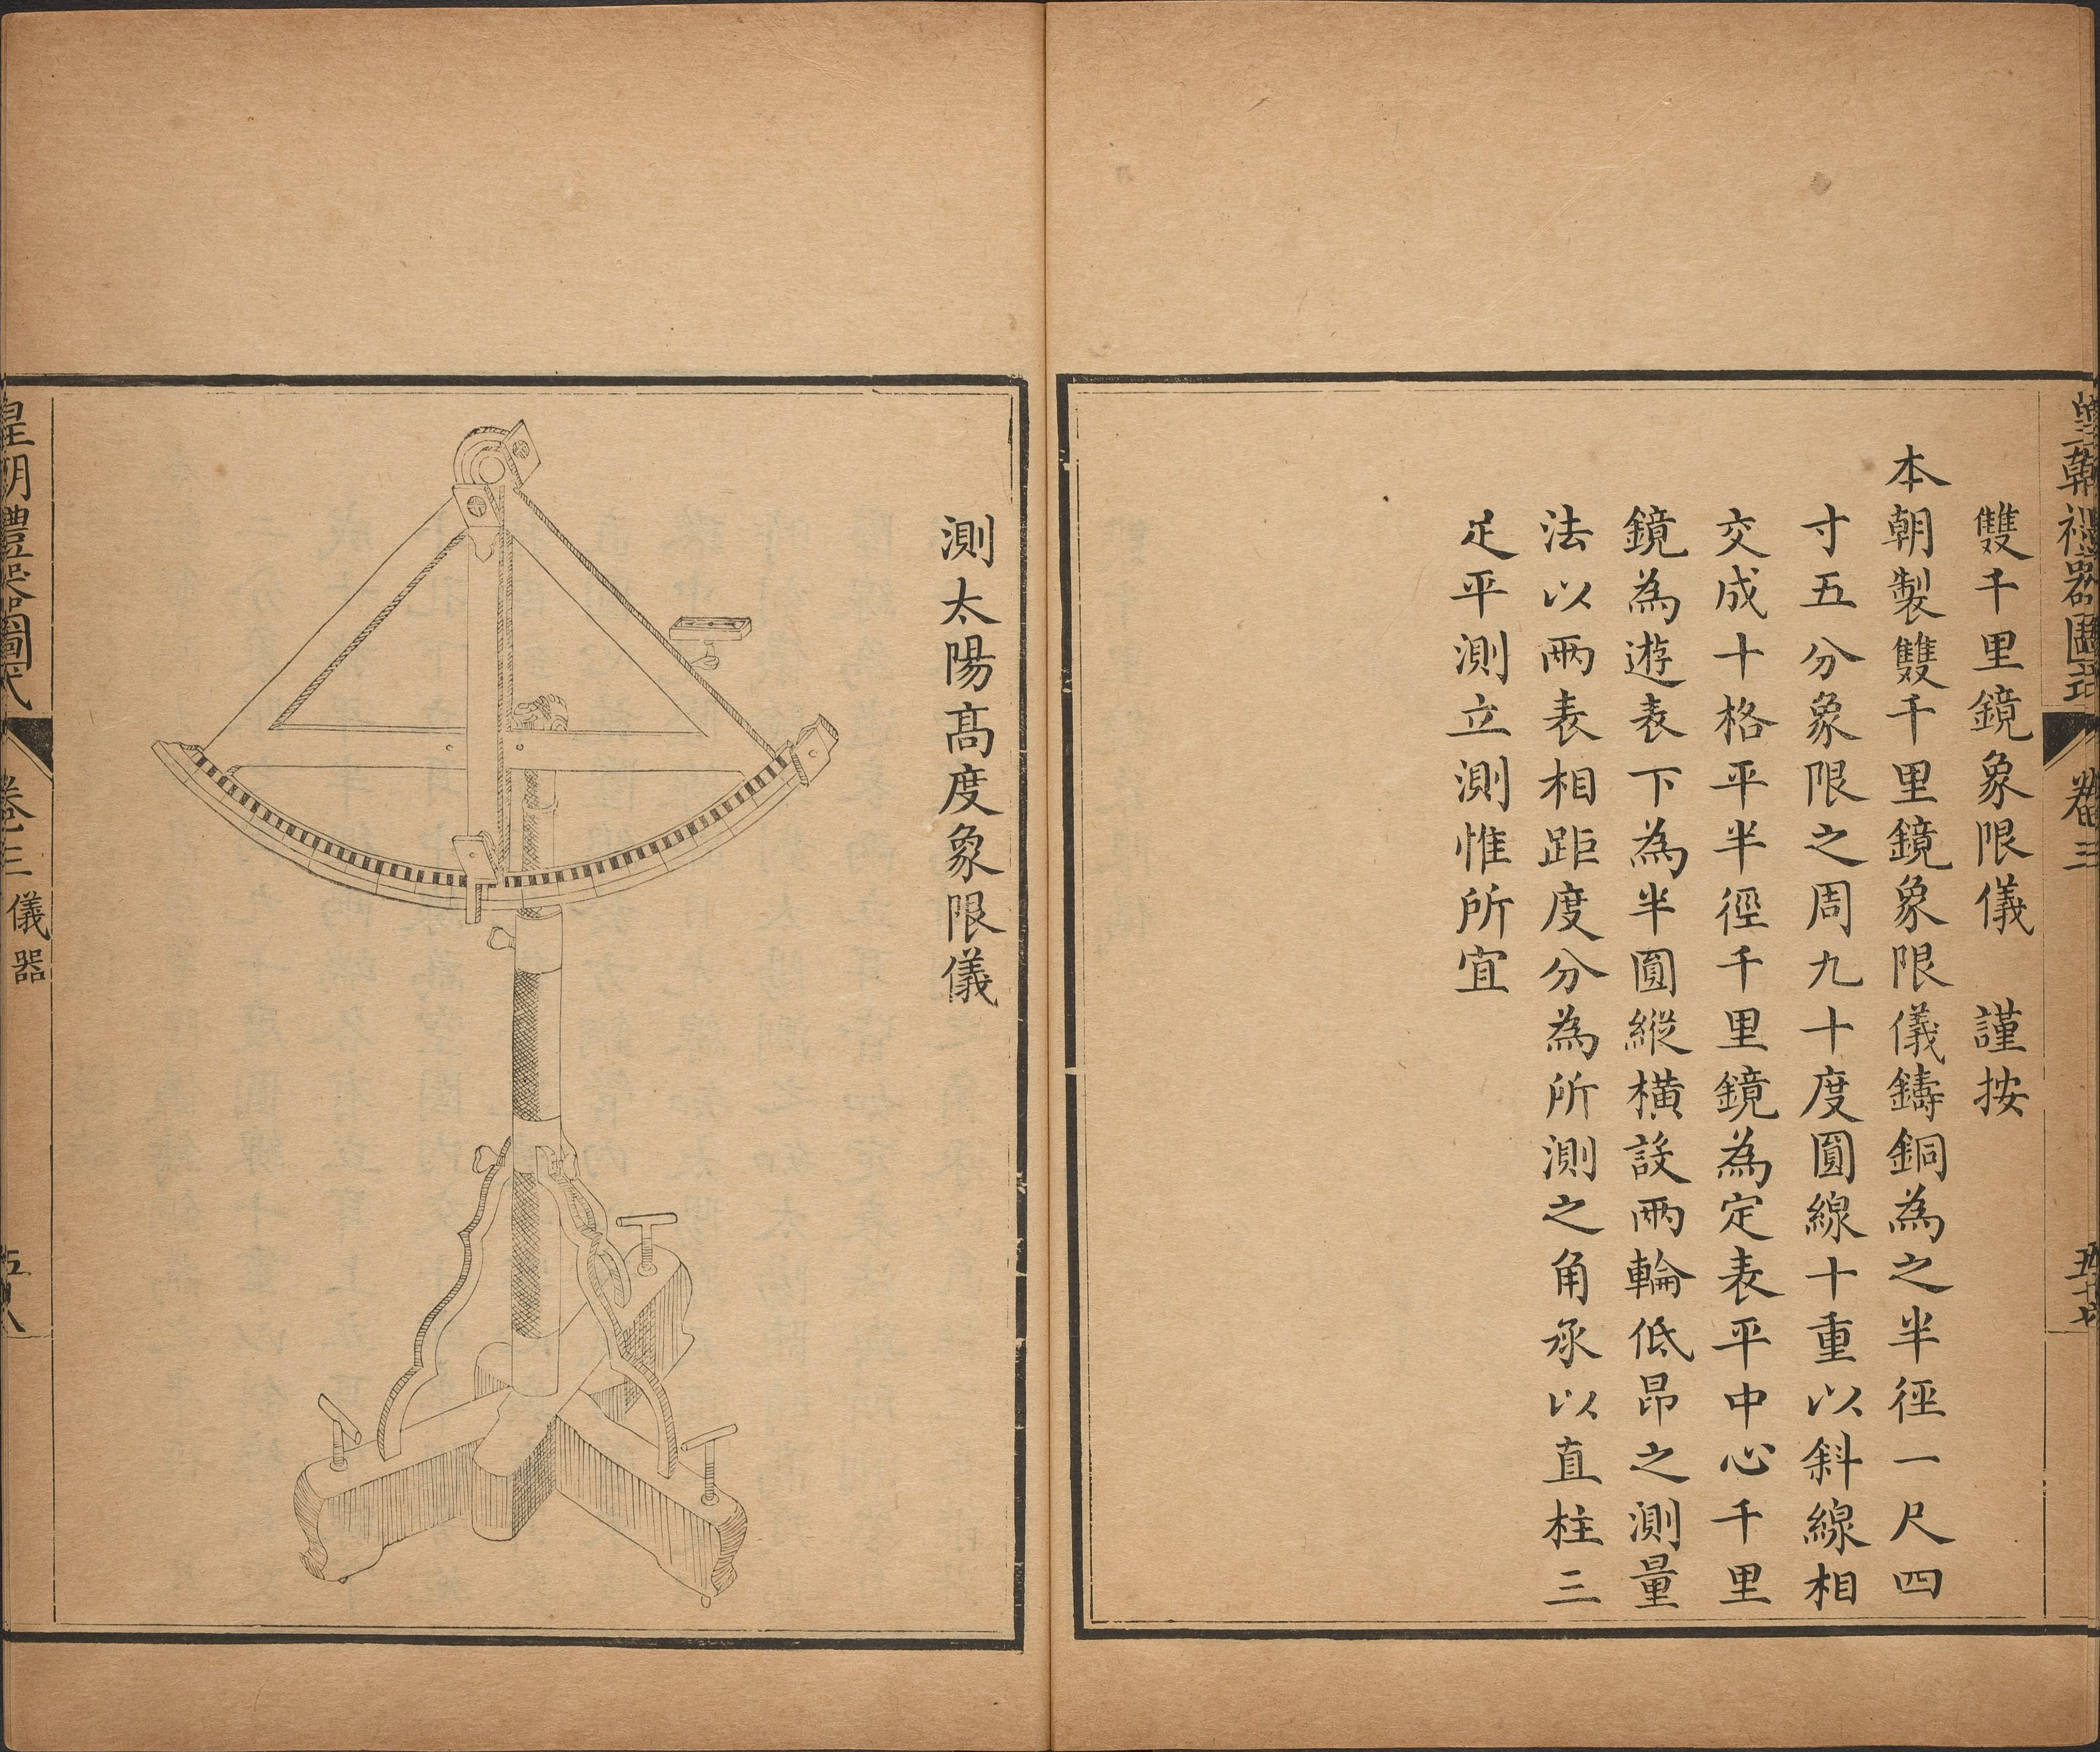 皇朝禮器圖式
卷三
五十七
雙千里鏡象限儀　謹按
本朝製雙千里鏡象限儀鑄銅為之半徑一尺四
寸五分象限之周九十度圓線十重以斜線相
交成十格平半徑千里鏡為定表平中心千里
鏡為遊表下為半圓縱橫設兩輪低昂之測量
法以兩表相距度分為所測之角承以直柱三
足平測立測惟所宜
測太陽高度象限儀
皇朝禮器圖式
卷三 儀器
五十八